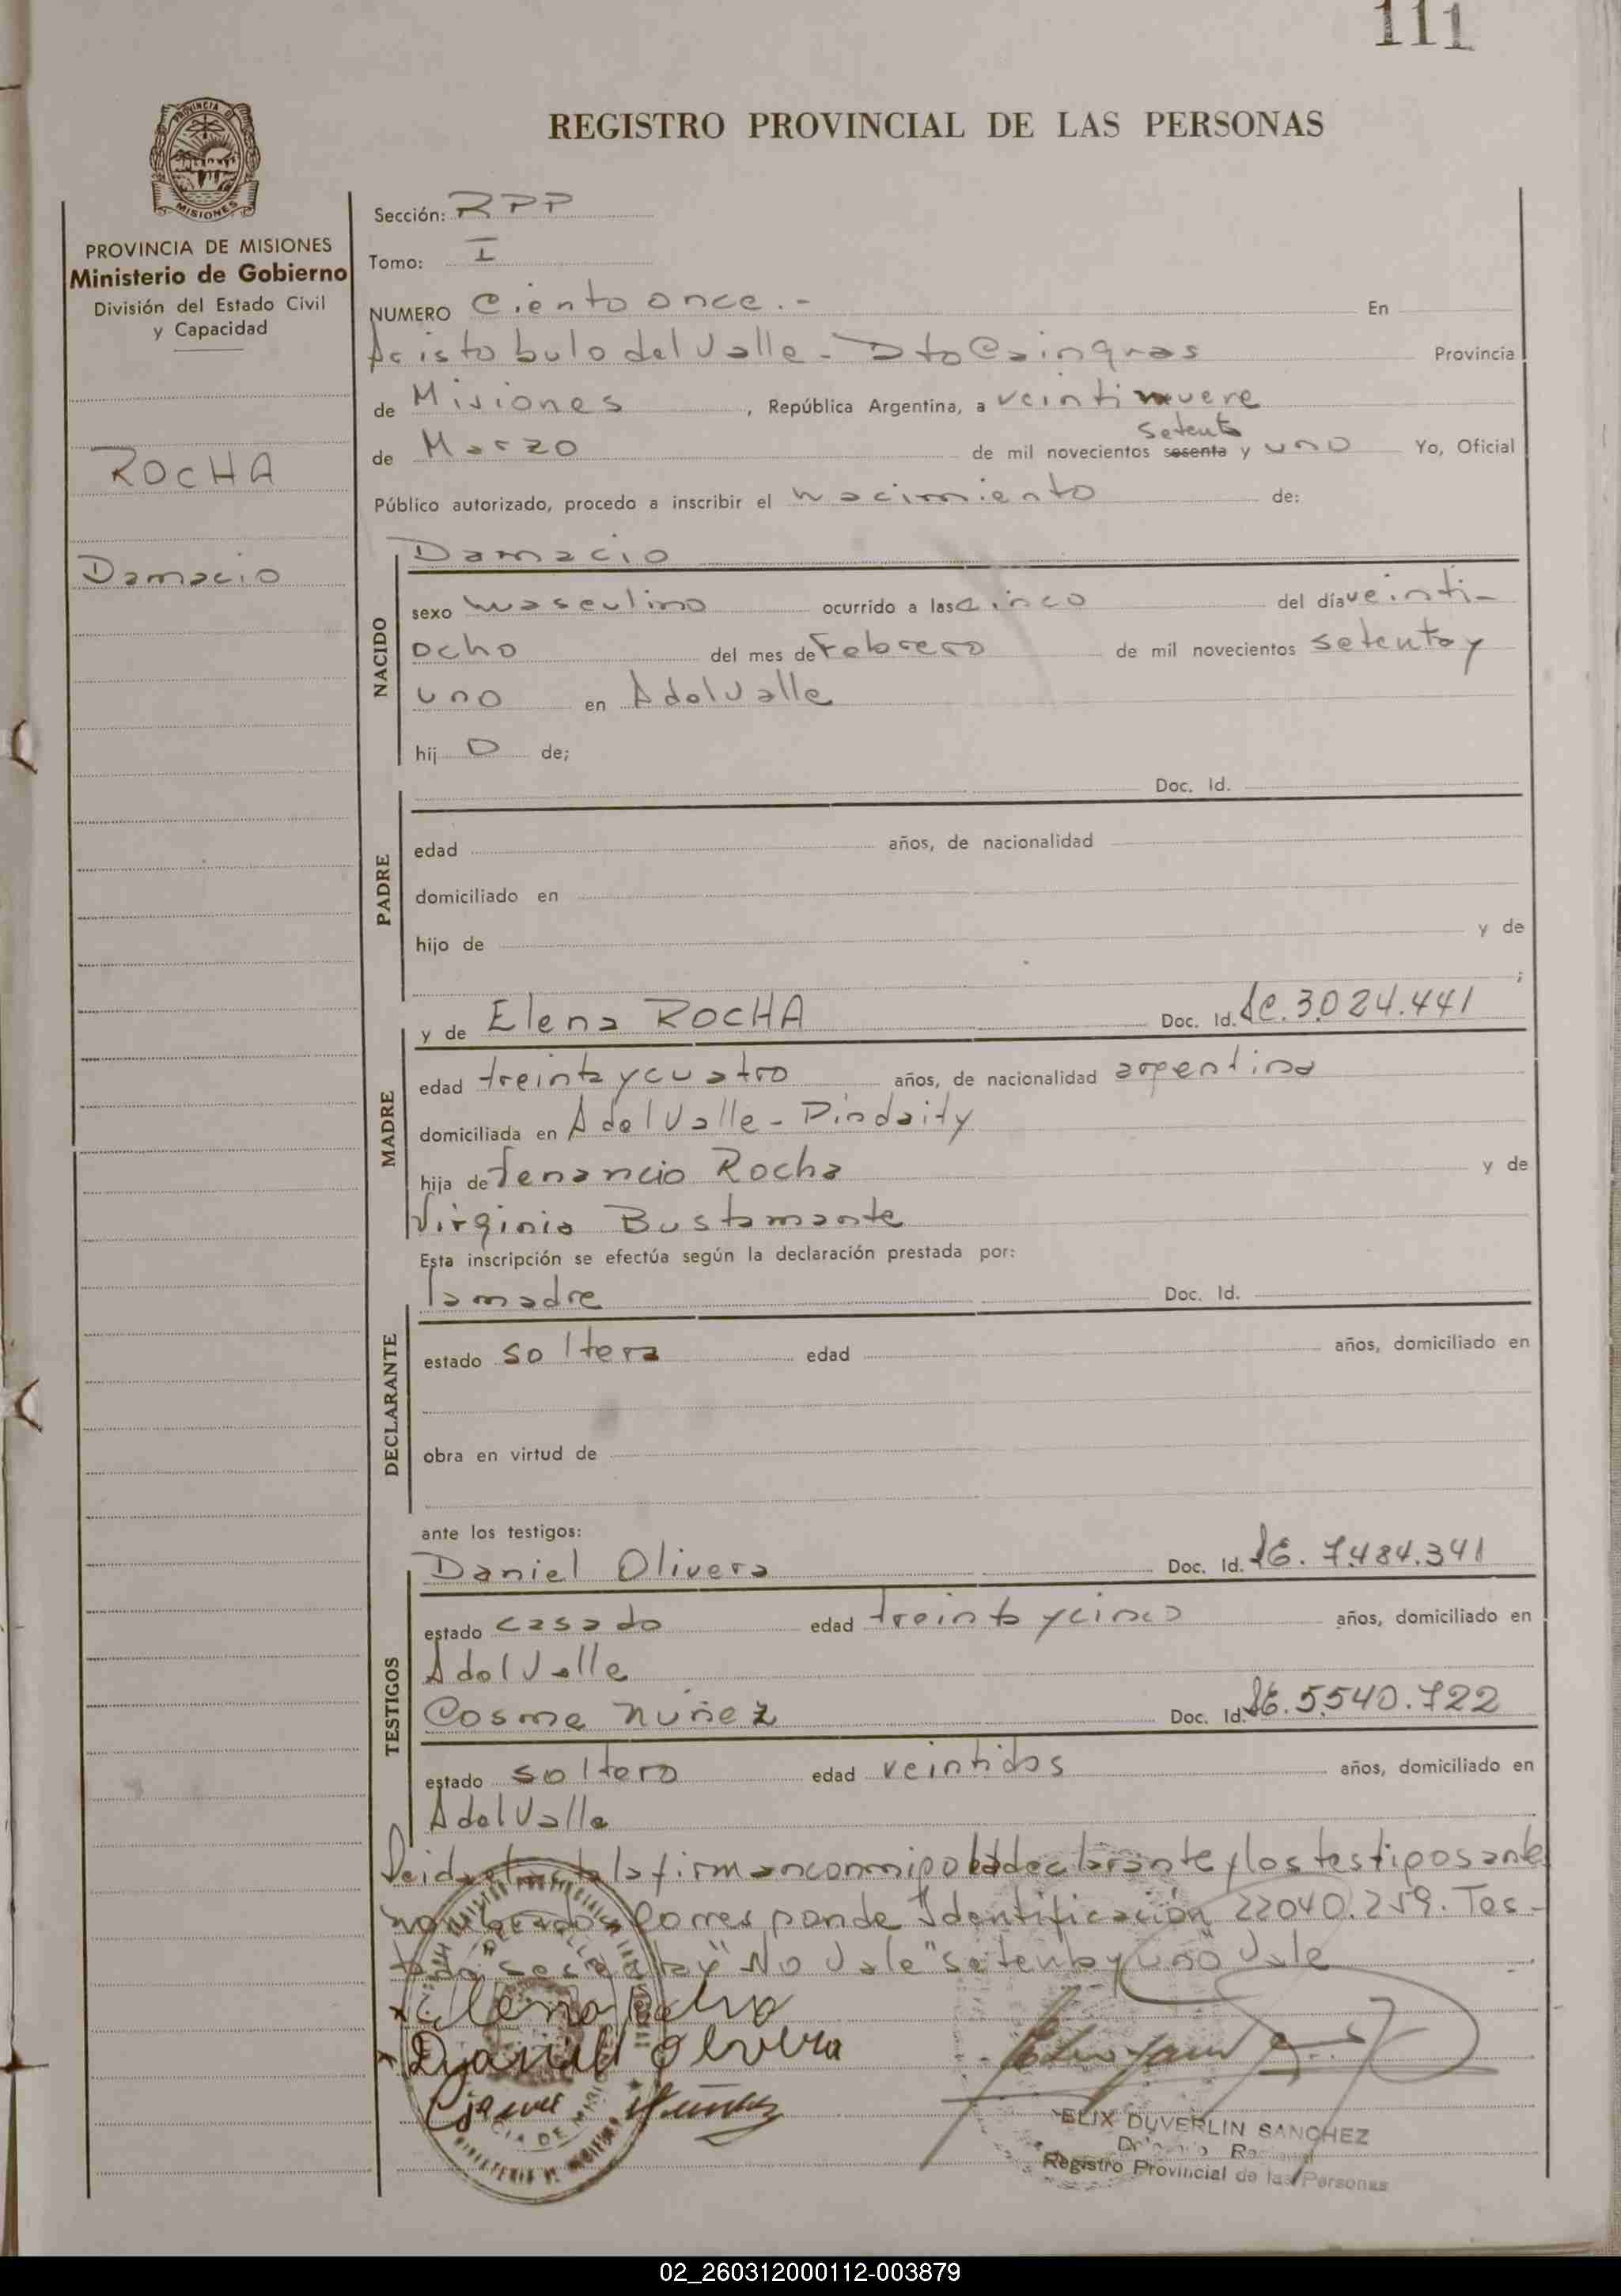 111
REGISTRO PROVINCIAL DE LAS PERSONAS
PROVINCIA
MISIONES
PROVINCIA DE MISIONES
Ministerio de Gobierno
División del Estado Civil
y Capacidad
ROCHA
Damacio
Sección: RPP
Tomo: I
NUMERO Ciento once.- En
Aristobulo del Valle - Dto Cainguas Provincia
de Misiones, República Argentina, a veintinueve
setenta
de Marzo de mil novecientos sesenta y uno Yo, Oficial
Público autorizado, procedo a inscribir el nacimiento de:
NACIDO
Damacio
sexo masculino ocurrido a las cinco del día veinti-
ocho del mes de Febrero de mil novecientos setenta y
uno en A del Valle
hij o de;
PADRE
Doc. Id.
edad años, de nacionalidad
domiciliado en
hijo de y de
;
MADRE
y de Elena ROCHA Doc. Id. LC. 3.024.441
edad treinta y cuatro años, de nacionalidad argentina
domiciliada en A del Valle - Pindaity
hija de Tenancio Rocha y de
Virginia Bustamante
Esta inscripción se efectúa según la declaración prestada por:
DECLARANTE
la madre Doc. Id.
estado soltera edad años, domiciliado en
obra en virtud de
ante los testigos:
TESTIGOS
Daniel Olivera Doc. Id. LE. 7.484.341
estado casado edad treinta y cinco años, domiciliado en
A del Valle
Cosme Nuñez Doc. Id. LE. 5.540.722
estado soltero edad veintidos años, domiciliado en
A del Valle
Leida el acta la firman conmigo la declarante y los testigos ante
nombrados Corresponde Identificación 22040.259. Tes-
tado "sesenta y" No Vale "setenta y uno" Vale
Elena Rocha
Daniel Olivera
Nuñez
ELIX DUVERLIN SANCHEZ
Registro Provincial de las Personas
02_260312000112-003879